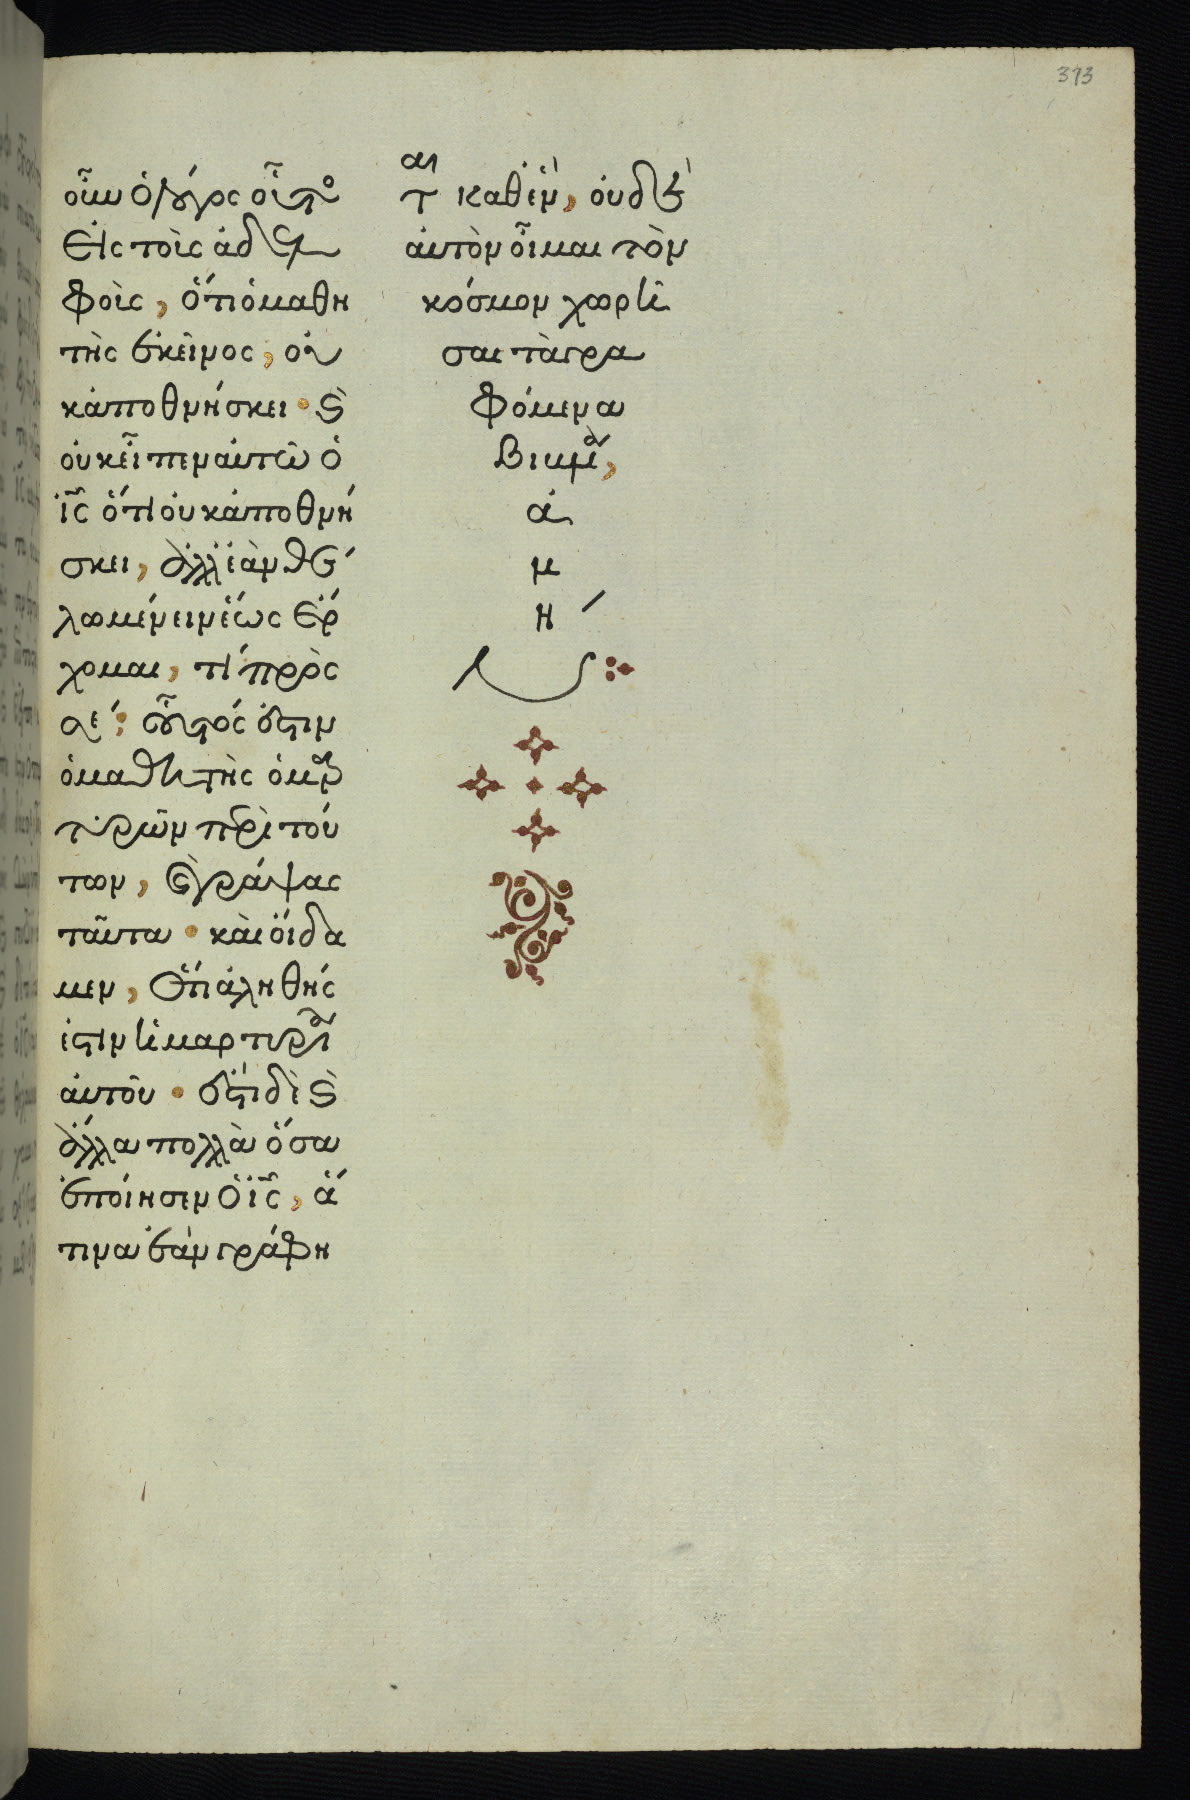 373
οὖν ὁ λόγος οὗτο
εἰς τοὺς ἀδελ
φοὺς, ὅτι ὁ μαθη
τὴς ἐκεῖνος, οὐ
κ ἀποθνήσκει · καὶ
οὐκ εἶπεν αὐτῶ ὁ
ἰς ὅτι οὐκ ἀποθνή
σκει, ἀλλ' ἐὰν θέ
λω μένειν ἕως ἔρ
χομαι, τί πρὸς
σέ; οὗτός ἐστιν
ὁ μαθητὴς ὁ μαρ
τυρῶν περὶ τού
των, ὁ γράψας
ταῦτα · καὶ οἴδα
μεν, ὅτι ἀληθής
ἐστιν ἡ μαρτυρία
αὐτοῦ · ἔστι δὲ καὶ
ἄλλα πολλὰ ὅσα
ἐποίησεν ὁ ἰς, ἅ
τινα ἐὰν γράφη
ται καθ' ἓν, οὐδὲ
αὐτὸν οἶμαι τὸν
κόσμον χωρῆ
σαι τὰ γρα
φόμενα
βιβλία,
ἀ
μ
ή
ν